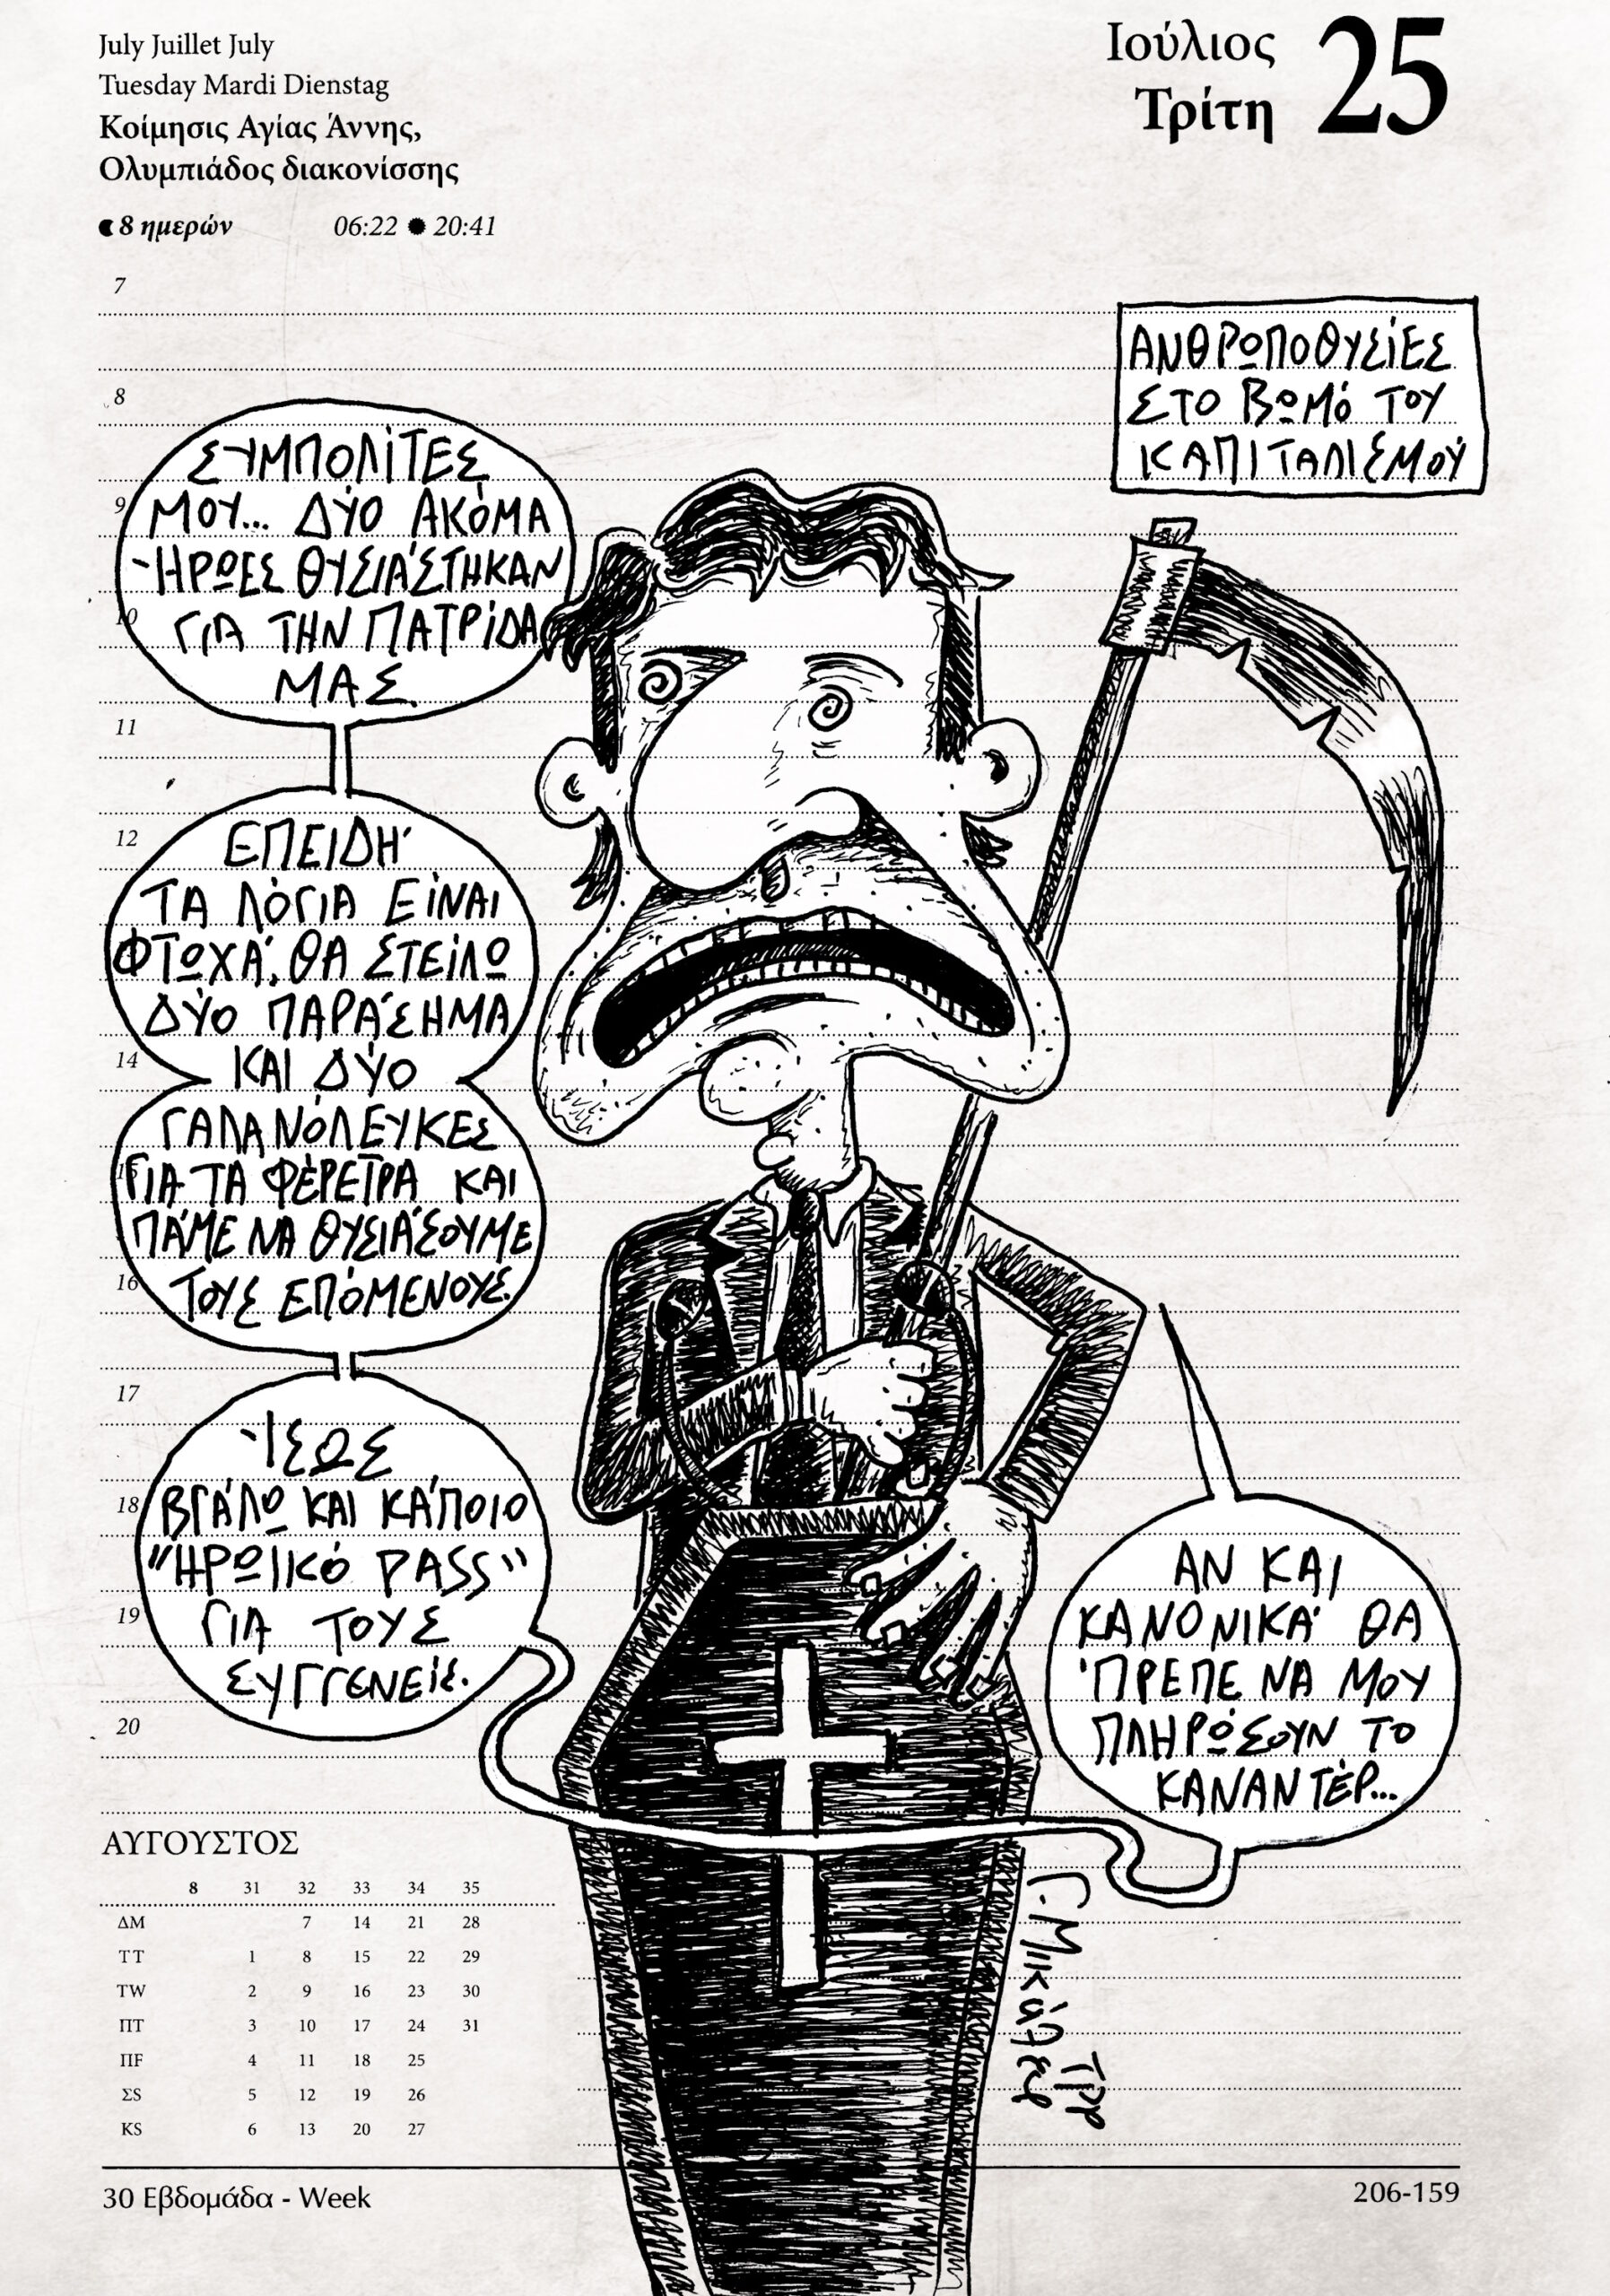 July Juillet July
Tuesday Mardi Dienstag
Κοίμησις Αγίας Άννης,
Ολυμπιάδος διακονίσσης
8 ημερών 06:22 20:41
Ιούλιος 25
Τρίτη
7
8
9
10
11
12
14
15
16
17
18
19
20
ΑΝΘΡΩΠΟΘΥΣΊΕΣ
ΣΤΟ ΒΩΜΌ ΤΟΥ
ΚΑΠΙΤΑΛΙΣΜΟΎ
ΣΥΜΠΟΛΊΤΕΣ
ΜΟΥ... ΔΎΟ ΑΚΌΜΑ
ΉΡΩΕΣ ΘΥΣΙΆΣΤΗΚΑΝ
ΓΙΑ ΤΗΝ ΠΑΤΡΊΔΑ
ΜΑΣ.
ΕΠΕΙΔΉ
ΤΑ ΛΌΓΙΑ ΕΊΝΑΙ
ΦΤΩΧΆ, ΘΑ ΣΤΕΊΛΩ
ΔΎΟ ΠΑΡΆΣΗΜΑ
ΚΑΙ ΔΎΟ
ΓΑΛΑΝΌΛΕΥΚΕΣ
ΓΙΑ ΤΑ ΦΈΡΕΤΡΑ ΚΑΙ
ΠΆΜΕ ΝΑ ΘΥΣΙΆΣΟΥΜΕ
ΤΟΥΣ ΕΠΌΜΕΝΟΥΣ.
ΊΣΩΣ
ΒΓΆΛΩ ΚΑΙ ΚΆΠΟΙΟ
"ΗΡΩΙΚΌ PASS"
ΓΙΑ ΤΟΥΣ
ΣΥΓΓΕΝΕΊΣ.
ΑΝ ΚΑΙ
ΚΑΝΟΝΙΚΆ ΘΑ
'ΠΡΕΠΕ ΝΑ ΜΟΥ
ΠΛΗΡΏΣΟΥΝ ΤΟ
ΚΑΝΑΝΤΈΡ...
Γ. Μικάλεφ
ΑΥΓΟΥΣΤΟΣ
8 31 32 33 34 35
ΔΜ 7 14 21 28
ΤΤ 1 8 15 22 29
ΤW 2 9 16 23 30
ΠΤ 3 10 17 24 31
ΠF 4 11 18 25
ΣS 5 12 19 26
KS 6 13 20 27
30 Εβδομάδα - Week
206-159